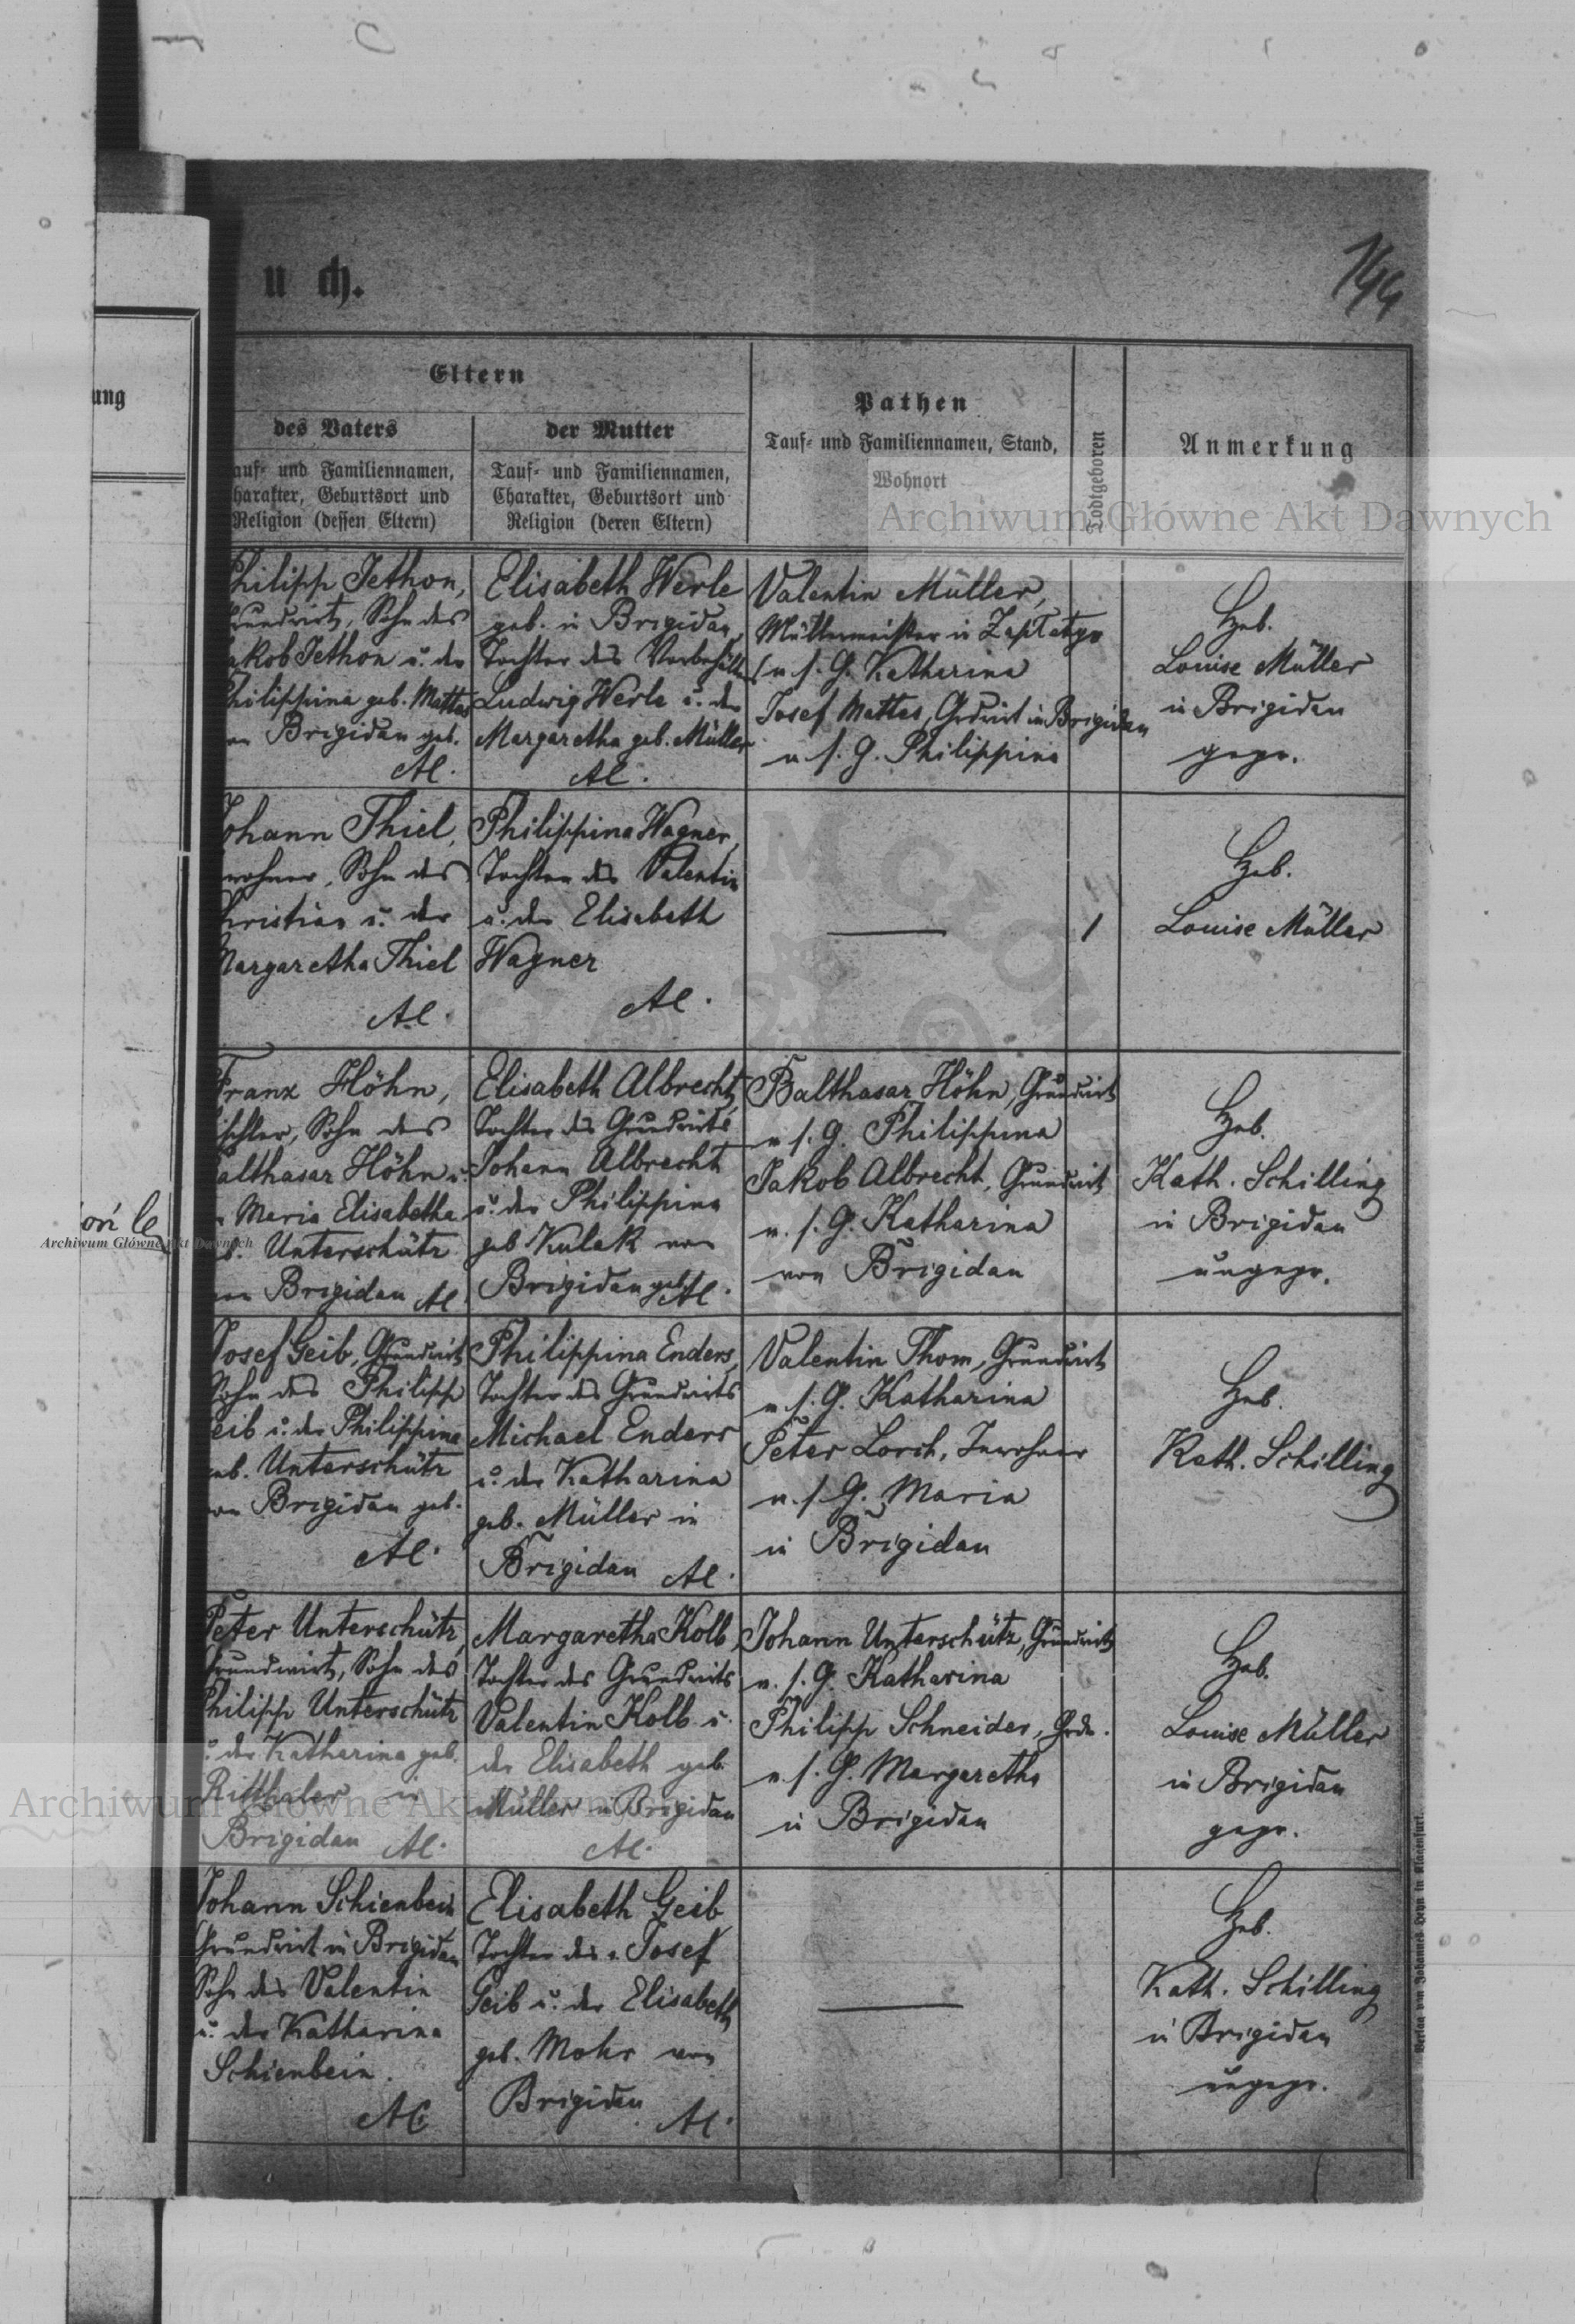 u ch.
144
ung
Eltern
des Vaters
der Mutter
Pathen
Tauf- und Familiennamen, Stand,
Wohnort
Todtgeboren
Anmerkung
auf- und Familiennamen,
harakter, Geburtsort und
Religion (dessen Eltern)
Tauf- und Familiennamen,
Charakter, Geburtsort und
Religion (deren Eltern)
Archiwum Główne Akt Dawnych
Philipp Jethon,
Grundwirt, Sohn des
Jakob Jethon u. der
Philippina geb. Mattes
von Brigidau geb.
AC.
Elisabeth Werle
geb. in Brigidau,
Tochter des
Ludwig Werle u. der
Margaretha geb. Müller
AC.
Valentin Müller,
Müllermeister in
u s. G. Katharina
Josef Mattes, Grdwirt in Brigidau
u s. G. Philippina
Heb.
Louise Müller
in Brigidau
gepr.
Johann Thiel,
wohner, Sohn des
Christian u. der
Margaretha Thiel
AC.
Philippina Wagner,
Tochter des Valentin
u. der Elisabeth
Wagner
AC.
1
Heb.
Louise Müller
Franz Höhn,
ischler, Sohn des
Balthasar Höhn u.
r Maria Elisabetha
b. Unterschütz
von Brigidau AC.
Elisabeth Albrecht,
Tochter des Grundwirts
Johann Albrecht
u. der Philippina
geb Kulak von
Brigidau geb. AC.
Balthasar Höhn, Grundwirt
u s. G. Philippina
Jakob Albrecht, Grundwirt
u. s. G. Katharina
von Brigidau
Heb.
Kath. Schilling
in Brigidau
ungepr.
on le
Archiwum Główne Akt Dawnych
Josef Geib, Grundwirt
Sohn des Philipp
eib u. der Philippina
geb. Unterschütz
von Brigidau geb.
AC.
Philippina Enders,
Tochter des Grundwirts
Michael Enders
u. der Katharina
geb. Müller in
Brigidau AC.
Valentin Thom, Grundwirt
u s. G. Katharina
Peter Lorch, Inwohner
u. s G. Maria
in Brigidau
Heb.
Kath. Schilling
Peter Unterschütz,
Grundwirt, Sohn des
Philipp Unterschütz
u. der Katharina geb.
Ritthaler in
Brigidau AC.
Margaretha Kolb,
Tochter des Grundwirts
Valentin Kolb u.
der Elisabeth geb.
Müller in Brigidau
AC.
Johann Unterschütz, Grundwirt
u. s. G. Katharina
Philipp Schneider, Grdw.
u. s. G. Margaretha
in Brigidau
Heb.
Louise Müller
in Brigidau
gepr.
Archiwum Główne Akt Dawnych
Johann Schienbein
Grundwirt in Brigidau
Sohn des Valentin
u. der Katharina
Schienbein.
AC.
Elisabeth Geib
Tochter des Josef
Geib u. der Elisabeth
geb. Mohr von
Brigidau AC.
Heb.
Kath. Schilling
in Brigidau
ungepr.
Verlag von Johannes Heyn in Klagenfurt.